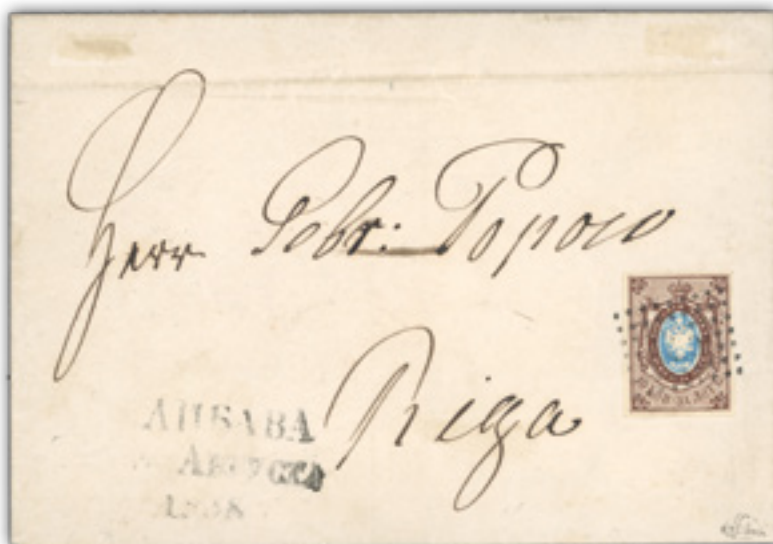 Herr Gebr: Popow
Riga
ЛИБАВА
АВГУСТА
1858